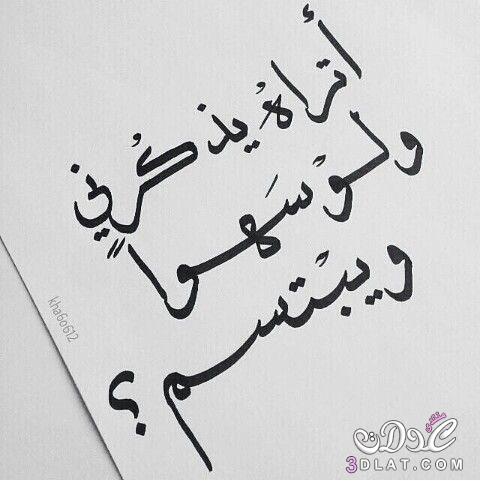 أتراهُ يذكُرني
ولوْ سَهواً
ويبْتسم ؟
kha6o612
منتدى
عدلات
3DLAT.COM